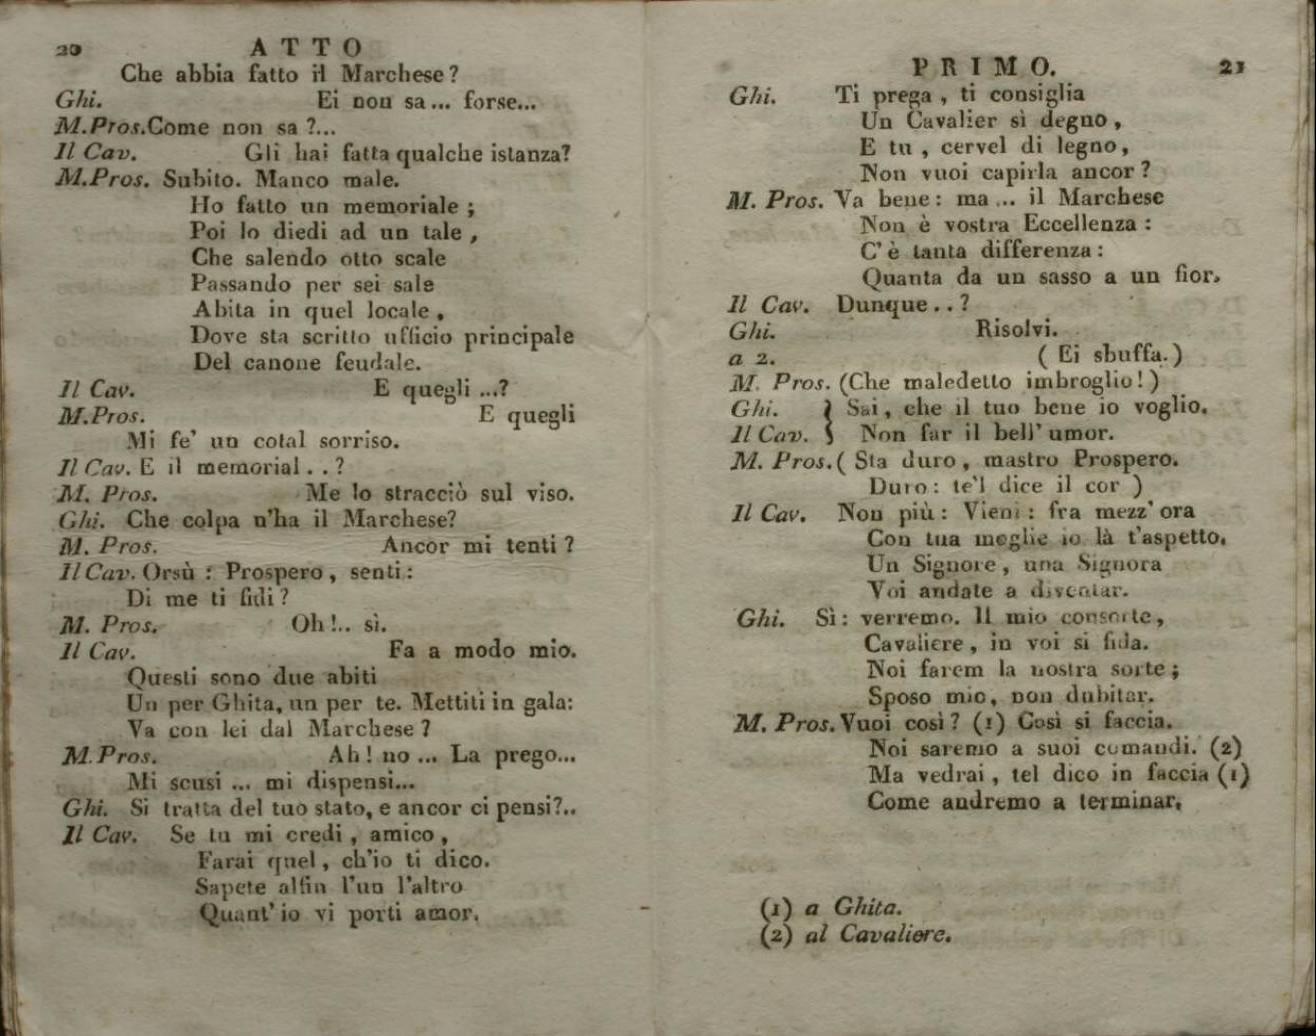 20 ATTO
Che abbia fatto il Marchese?
Ghi. Ei non sa... forse...
M.Pros.Come non sa?...
Il Cav. Gli hai fatta qualche istanza?
M.Pros. Subito. Manco male.
Ho fatto un memoriale;
Poi lo diedi ad un tale,
Che salendo otto scale
Passando per sei sale
Abita in quel locale,
Dove sta scritto ufficio principale
Del canone feudale.
Il Cav. E quegli ...?
M.Pros. E quegli
Mi fe' un cotal sorriso.
Il Cav. E il memorial..?
M. Pros. Me lo stracciò sul viso.
Ghi. Che colpa n'ha il Marchese?
M. Pros. Ancor mi tenti?
Il Cav. Orsù: Prospero, senti:
Di me ti fidi?
M. Pros. Oh!.. sì.
Il Cav. Fa a modo mio.
Questi sono due abiti
Un per Ghita, un per te. Mettiti in gala:
Va con lei dal Marchese?
M.Pros. Ah! no... La prego...
Mi scusi ... mi dispensi...
Ghi. Si tratta del tuo stato, e ancor ci pensi?..
Il Cav. Se tu mi credi, amico,
Farai quel, ch'io ti dico.
Sapete alfin l'un l'altro
Quant'io vi porti amor.
PRIMO. 21
Ghi. Ti prega, ti consiglia
Un Cavalier sì degno,
E tu, cervel di legno,
Non vuoi capirla ancor?
M. Pros. Va bene: ma ... il Marchese
Non è vostra Eccellenza:
C'è tanta differenza:
Quanta da un sasso a un fior.
Il Cav. Dunque..?
Ghi. Risolvi.
a 2. (Ei sbuffa.)
M. Pros. (Che maledetto imbroglio!)
Ghi. } Sai, che il tuo bene io voglio.
Il Cav. } Non far il bell'umor.
M. Pros. (Sta duro, mastro Prospero.
Duro: te'l dice il cor)
Il Cav. Non più: Vieni: fra mezz'ora
Con tua moglie io là t'aspetto.
Un Signore, una Signora
Voi andate a diventar.
Ghi. Sì: verremo. Il mio consorte,
Cavaliere, in voi si fida.
Noi farem la nostra sorte;
Sposo mio, non dubitar.
M. Pros. Vuoi così? (1) Così si faccia.
Noi saremo a suoi comandi. (2)
Ma vedrai, tel dico in faccia (1)
Come andremo a terminar.
(1) a Ghita.
(2) al Cavaliere.